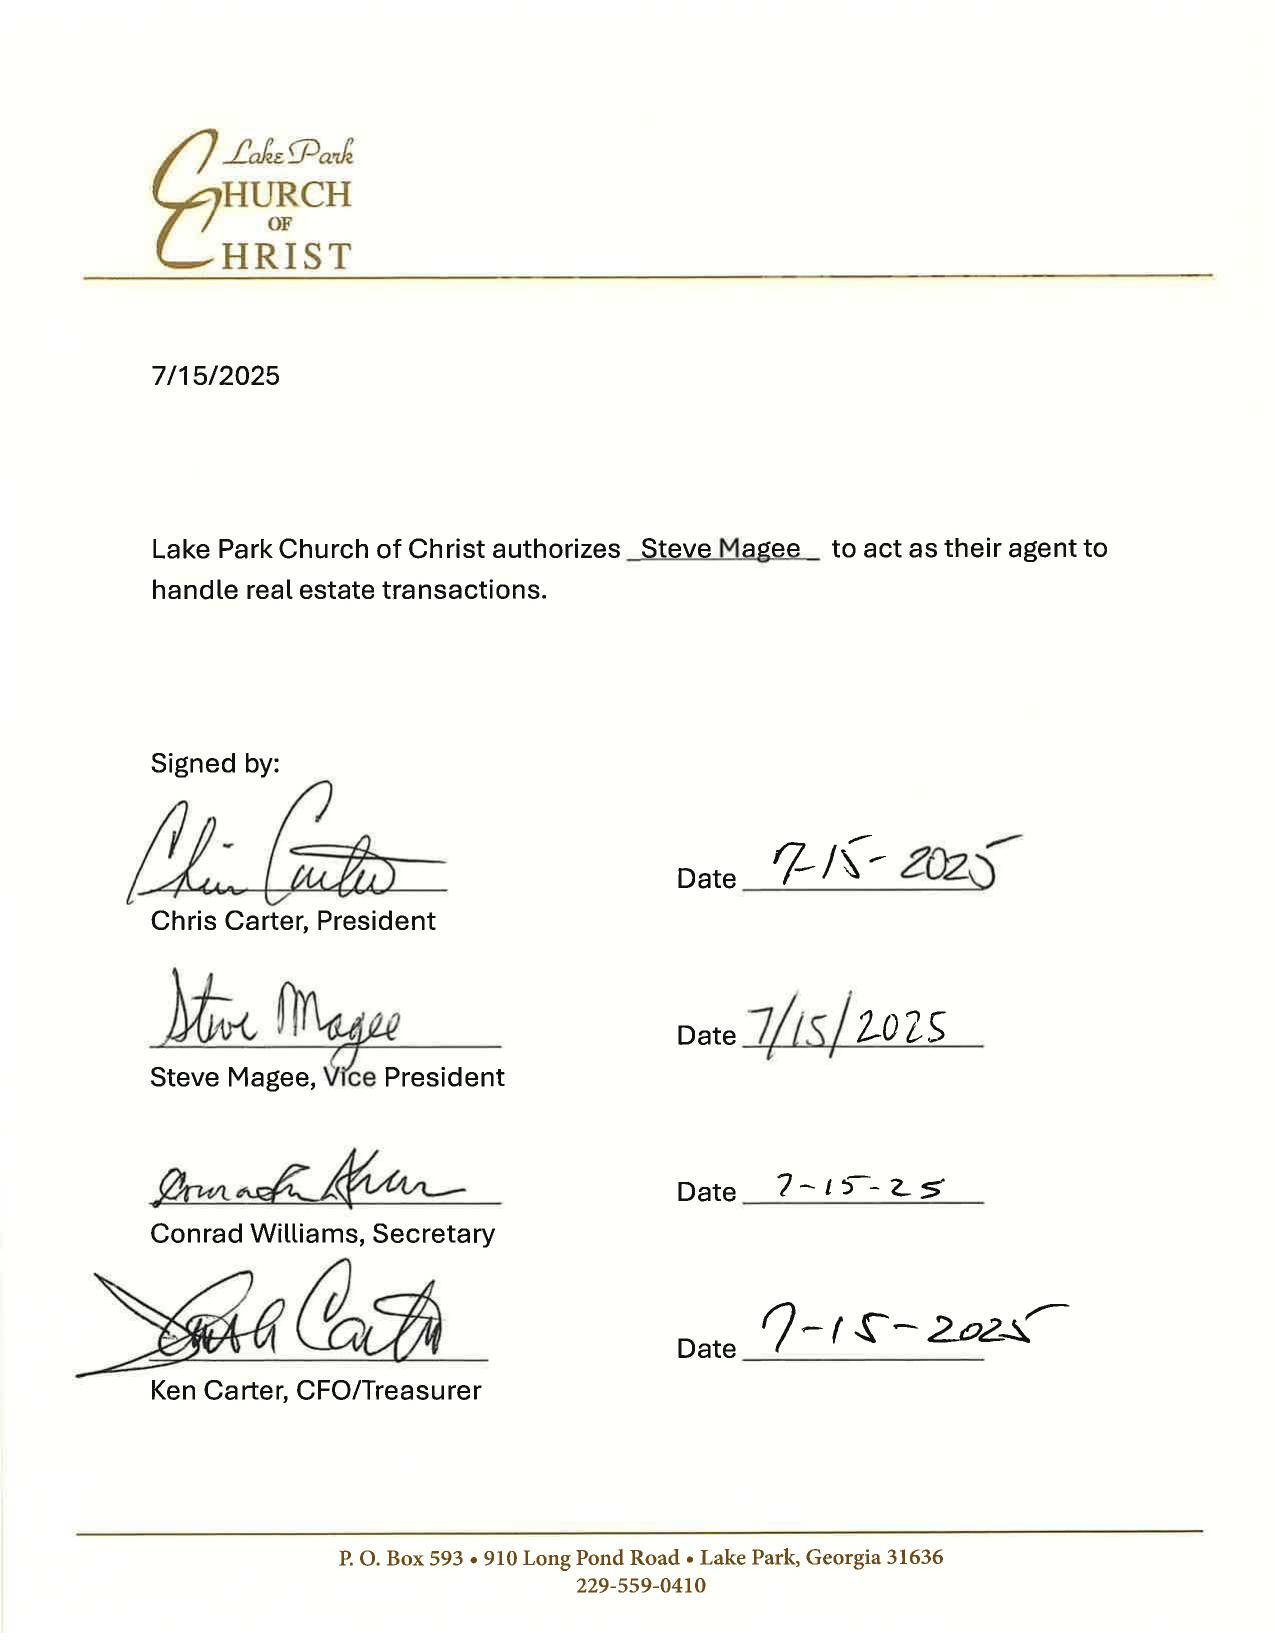 Lake Park
CHURCH
OF
CHRIST
7/15/2025
Lake Park Church of Christ authorizes _Steve Magee_ to act as their agent to
handle real estate transactions.
Signed by:
Chris Carter
Date 7-15-2025
Chris Carter, President
Steve Magee
Date 7/15/2025
Steve Magee, Vice President
Date 7-15-25
Conrad Williams, Secretary
Carter
Date 7-15-2025
Ken Carter, CFO/Treasurer
P. O. Box 593 • 910 Long Pond Road • Lake Park, Georgia 31636
229-559-0410